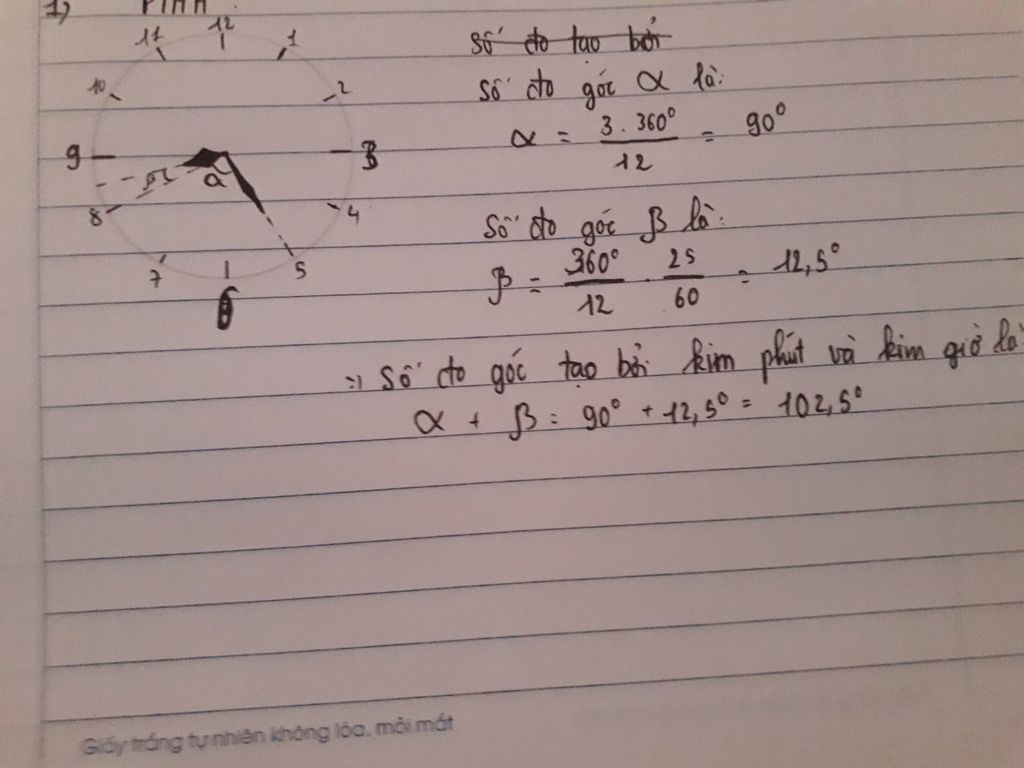 1) PTHH.
12
11
1
10
2
9
3
α
β
8
4
7
5
6
số đo tạo bởi
số đo góc α là:
α = 3 . 360° / 12 = 90°
số đo góc β là:
β = 360° / 12 . 25 / 60 = 12,5°
=) số đo góc tạo bởi kim phút và kim giờ là
α + β = 90° + 12,5° = 102,5°
Giấy trắng tự nhiên không lóa, mỏi mắt